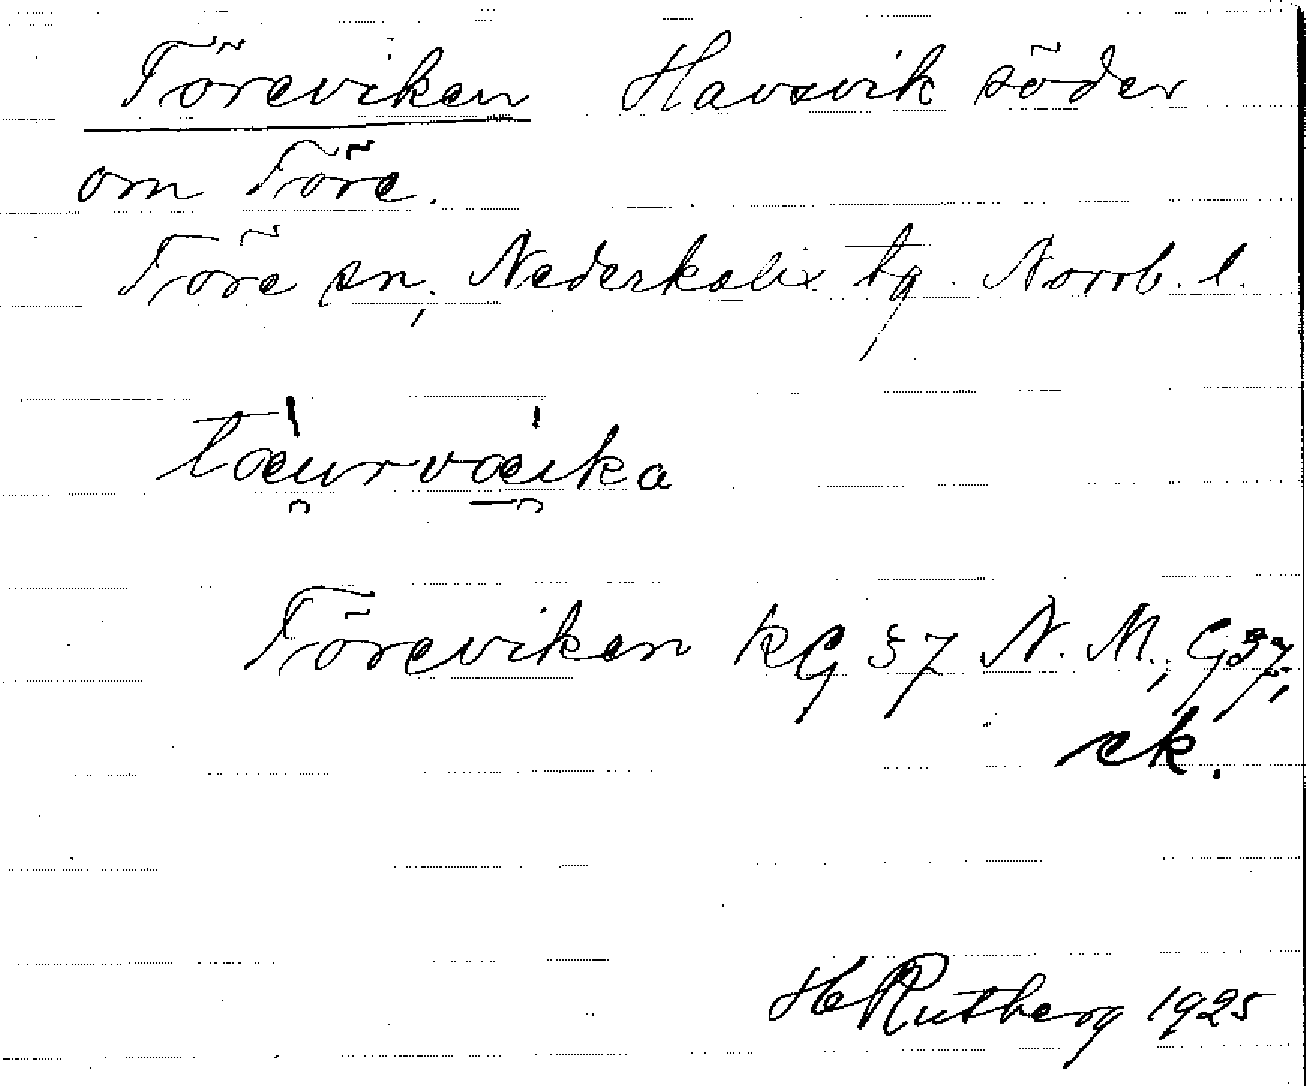 Töreviken Havsvik söder
om Töre.
Töre sn, Nederkalix tg. Norrb. l.
tœu̯rvœi̯ka
Töreviken kG 37 N. M., G37,
ek.
H Rutberg 1925